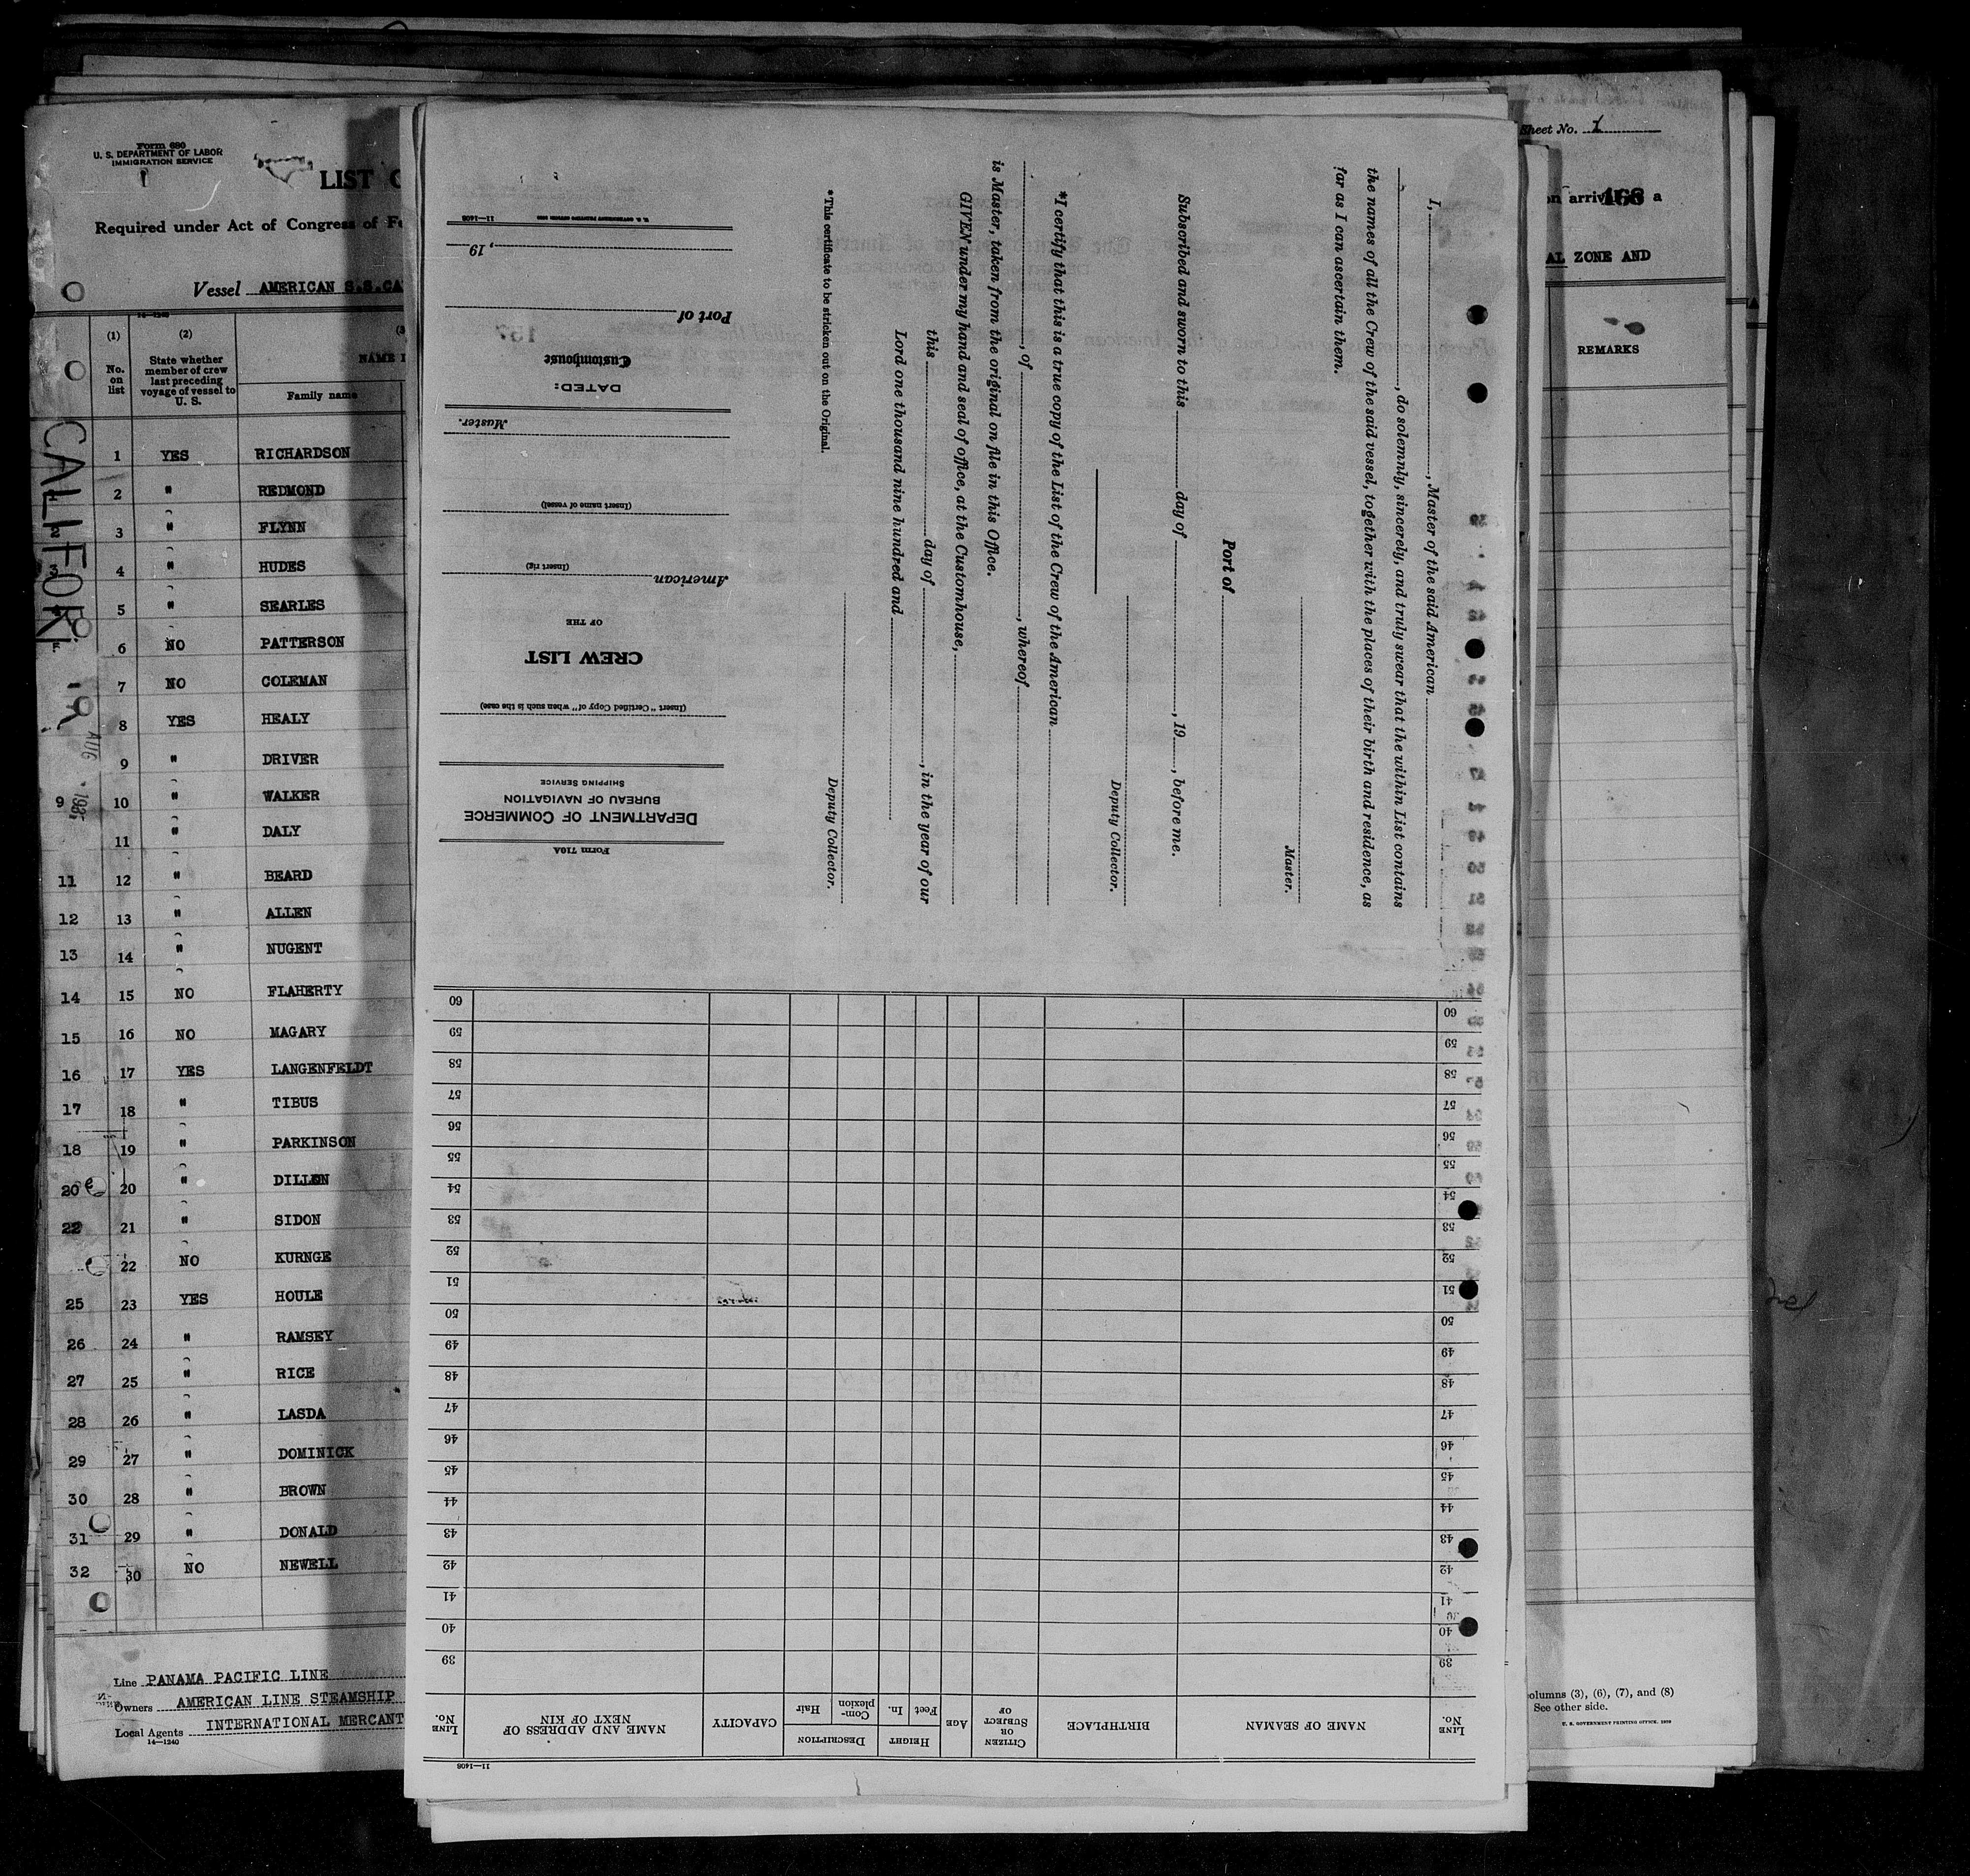 Form 680
U. S. DEPARTMENT OF LABOR
IMMIGRATION SERVICE
LIST
Required under Act of Congress of
Vessel AMERICAN S.S.CA
(1)
No. on list
(2)
State whether member of crew last preceding voyage of vessel to U. S.
Family name
CALIFOR
AUG
1 YES RICHARDSON
2 " REDMOND
3 " FLYNN
4 " HUDES
5 " SEARLES
6 NO PATTERSON
7 NO COLEMAN
8 YES HEALY
9 " DRIVER
9 10 " WALKER
11 " DALY
11 12 " BEARD
12 13 " ALLEN
13 14 " NUGENT
14 15 NO FLAHERTY
15 16 NO MAGARY
16 17 YES LANGENFELDT
17 18 " TIBUS
18 19 " PARKINSON
20 20 " DILLON
22 21 " SIDON
22 NO KURNGE
25 23 YES HOULE
26 24 " RAMSEY
27 25 " RICE
28 26 " LASDA
29 27 " DOMINICK
30 28 " BROWN
31 29 " DONALD
32 30 NO NEWELL
Line PANAMA PACIFIC LINE
Owners AMERICAN LINE STEAMSHIP
Local Agents INTERNATIONAL MERCANT
14—1240
I, , Master of the said American
, do solemnly, sincerely, and truly swear that the within List contains
the names of all the Crew of the said vessel, together with the places of their birth and residence, as
far as I can ascertain them.
Master.
Port of
Subscribed and sworn to this day of , 19 , before me.
Deputy Collector.
*I certify that this is a true copy of the List of the Crew of the American
, of , whereof
is Master, taken from the original on file in this Office.
GIVEN under my hand and seal of office, at the Customhouse,
this day of , in the year of our
Lord one thousand nine hundred and
Deputy Collector.
*This certificate to be stricken out on the Original.
Form 710A
DEPARTMENT OF COMMERCE
BUREAU OF NAVIGATION
SHIPPING SERVICE
(Insert "Certified Copy of" when such is the case)
CREW LIST
OF THE
American
(Insert rig)
(Insert name of vessel)
Master.
DATED:
Customhouse
Port of
, 19
11—1408
11—1408
LINE No.
NAME OF SEAMAN
BIRTHPLACE
CITIZEN OR SUBJECT OF
AGE
HEIGHT
Feet
In.
DESCRIPTION
Complexion
Hair
CAPACITY
NAME AND ADDRESS OF NEXT OF KIN
LINE No.
39 39
40 40
41 41
42 42
43 43
44 44
45 45
46 46
47 47
48 48
49 49
50 50
51 51
52 52
53 53
54 54
55 55
56 56
57 57
58 58
59 59
60 60
Sheet No. 1
on arrival a
ZONE AND
REMARKS
columns (3), (6), (7), and (8)
See other side.
U. S. GOVERNMENT PRINTING OFFICE.